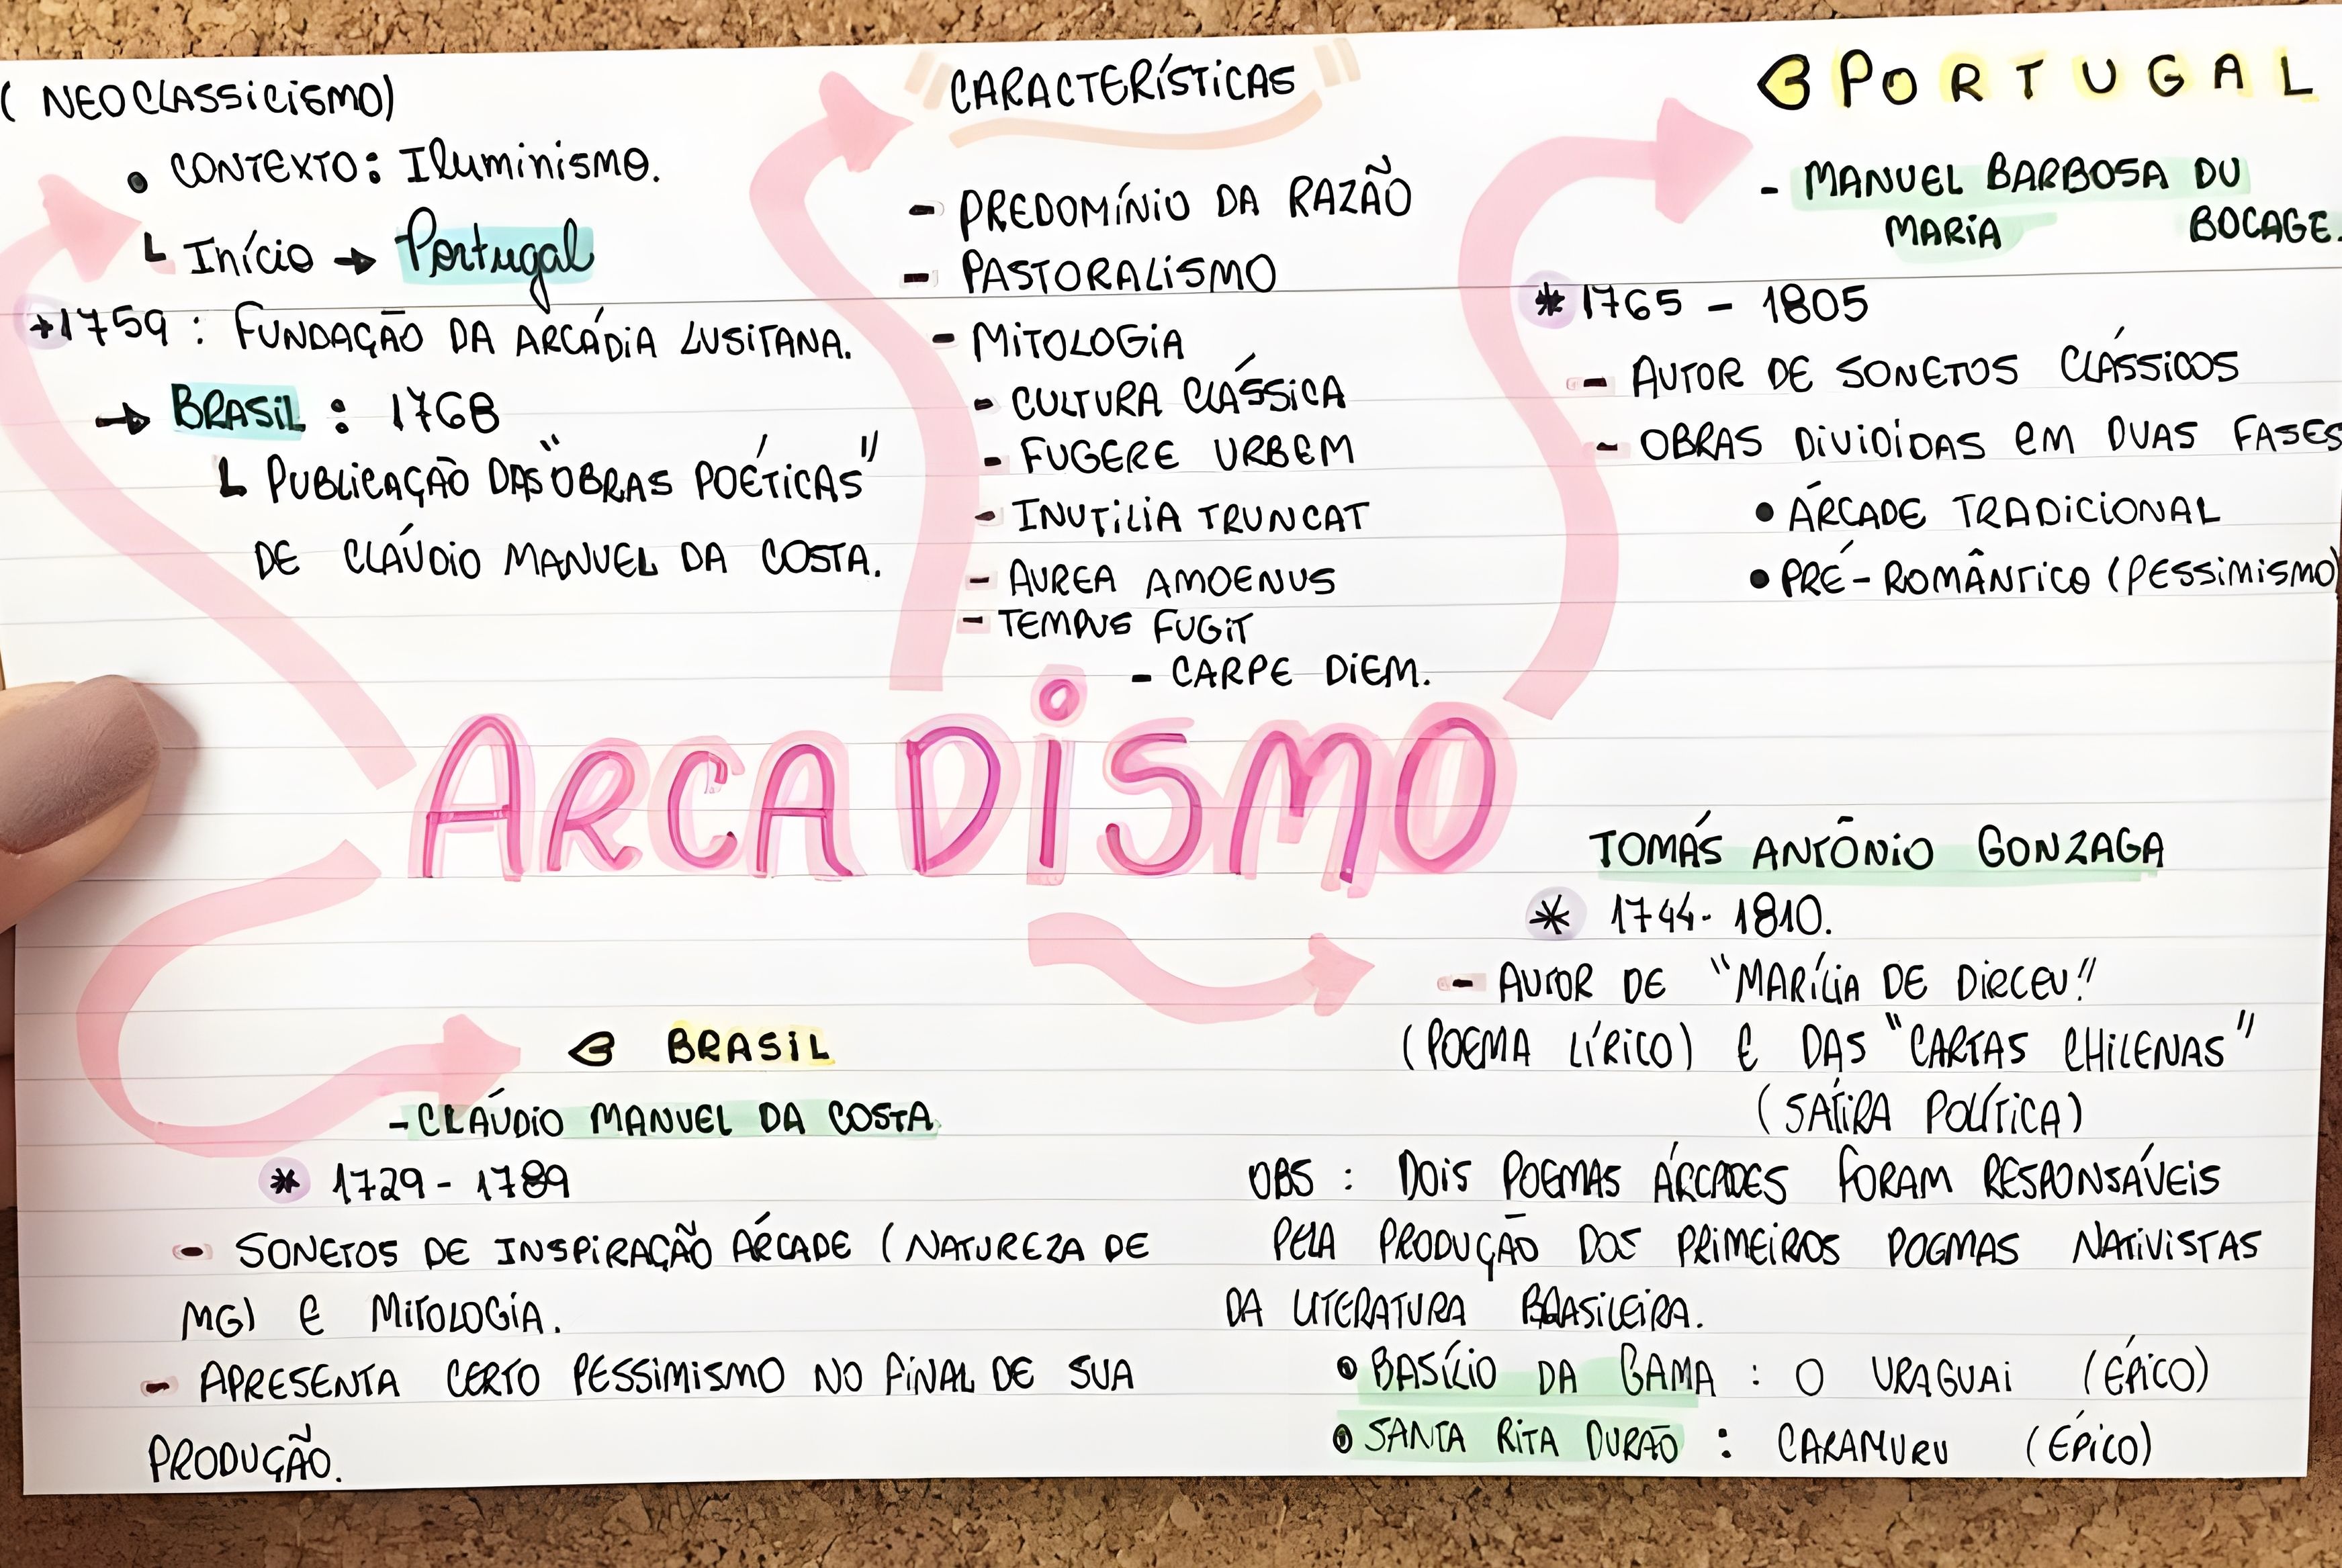 ( NEOCLASSICISMO)
• CONTEXTO: Iluminismo.
Início → Portugal
1759 : FUNDAÇÃO DA ARCÁDIA LUSITANA.
→ BRASIL : 1768
PUBLICAÇÃO DAS "OBRAS POÉTICAS"
DE CLÁUDIO MANUEL DA COSTA.
"CARACTERÍSTICAS"
- PREDOMÍNIO DA RAZÃO
- PASTORALISMO
- MITOLOGIA
- CULTURA CLÁSSICA
- FUGERE URBEM
- INUTILIA TRUNCAT
- AUREA AMOENUS
- TEMPUS FUGIT
- CARPE DIEM.
PORTUGAL
- MANUEL BARBOSA DU
MARIA BOCAGE.
* 1765 - 1805
- AUTOR DE SONETOS CLÁSSICOS
- OBRAS DIVIDIDAS EM DUAS FASES
• ÁRCADE TRADICIONAL
• PRÉ-ROMÂNTICO (PESSIMISMO)
ARCADISMO
BRASIL
- CLÁUDIO MANUEL DA COSTA
* 1729 - 1789
- SONETOS DE INSPIRAÇÃO ÁRCADE (NATUREZA DE
MG) E MITOLOGIA.
- APRESENTA CERTO PESSIMISMO NO FINAL DE SUA
PRODUÇÃO.
TOMÁS ANTÔNIO GONZAGA
* 1744- 1810.
- AUTOR DE "MARÍLIA DE DIRCEU"
(POEMA LÍRICO) E DAS "CARTAS CHILENAS"
(SÁTIRA POLÍTICA)
OBS : DOIS POEMAS ÁRCADES FORAM RESPONSÁVEIS
PELA PRODUÇÃO DOS PRIMEIROS POEMAS NATIVISTAS
DA LITERATURA BRASILEIRA.
• BASÍLIO DA GAMA : O URAGUAI (ÉPICO)
• SANTA RITA DURÃO : CARAMURU (ÉPICO)